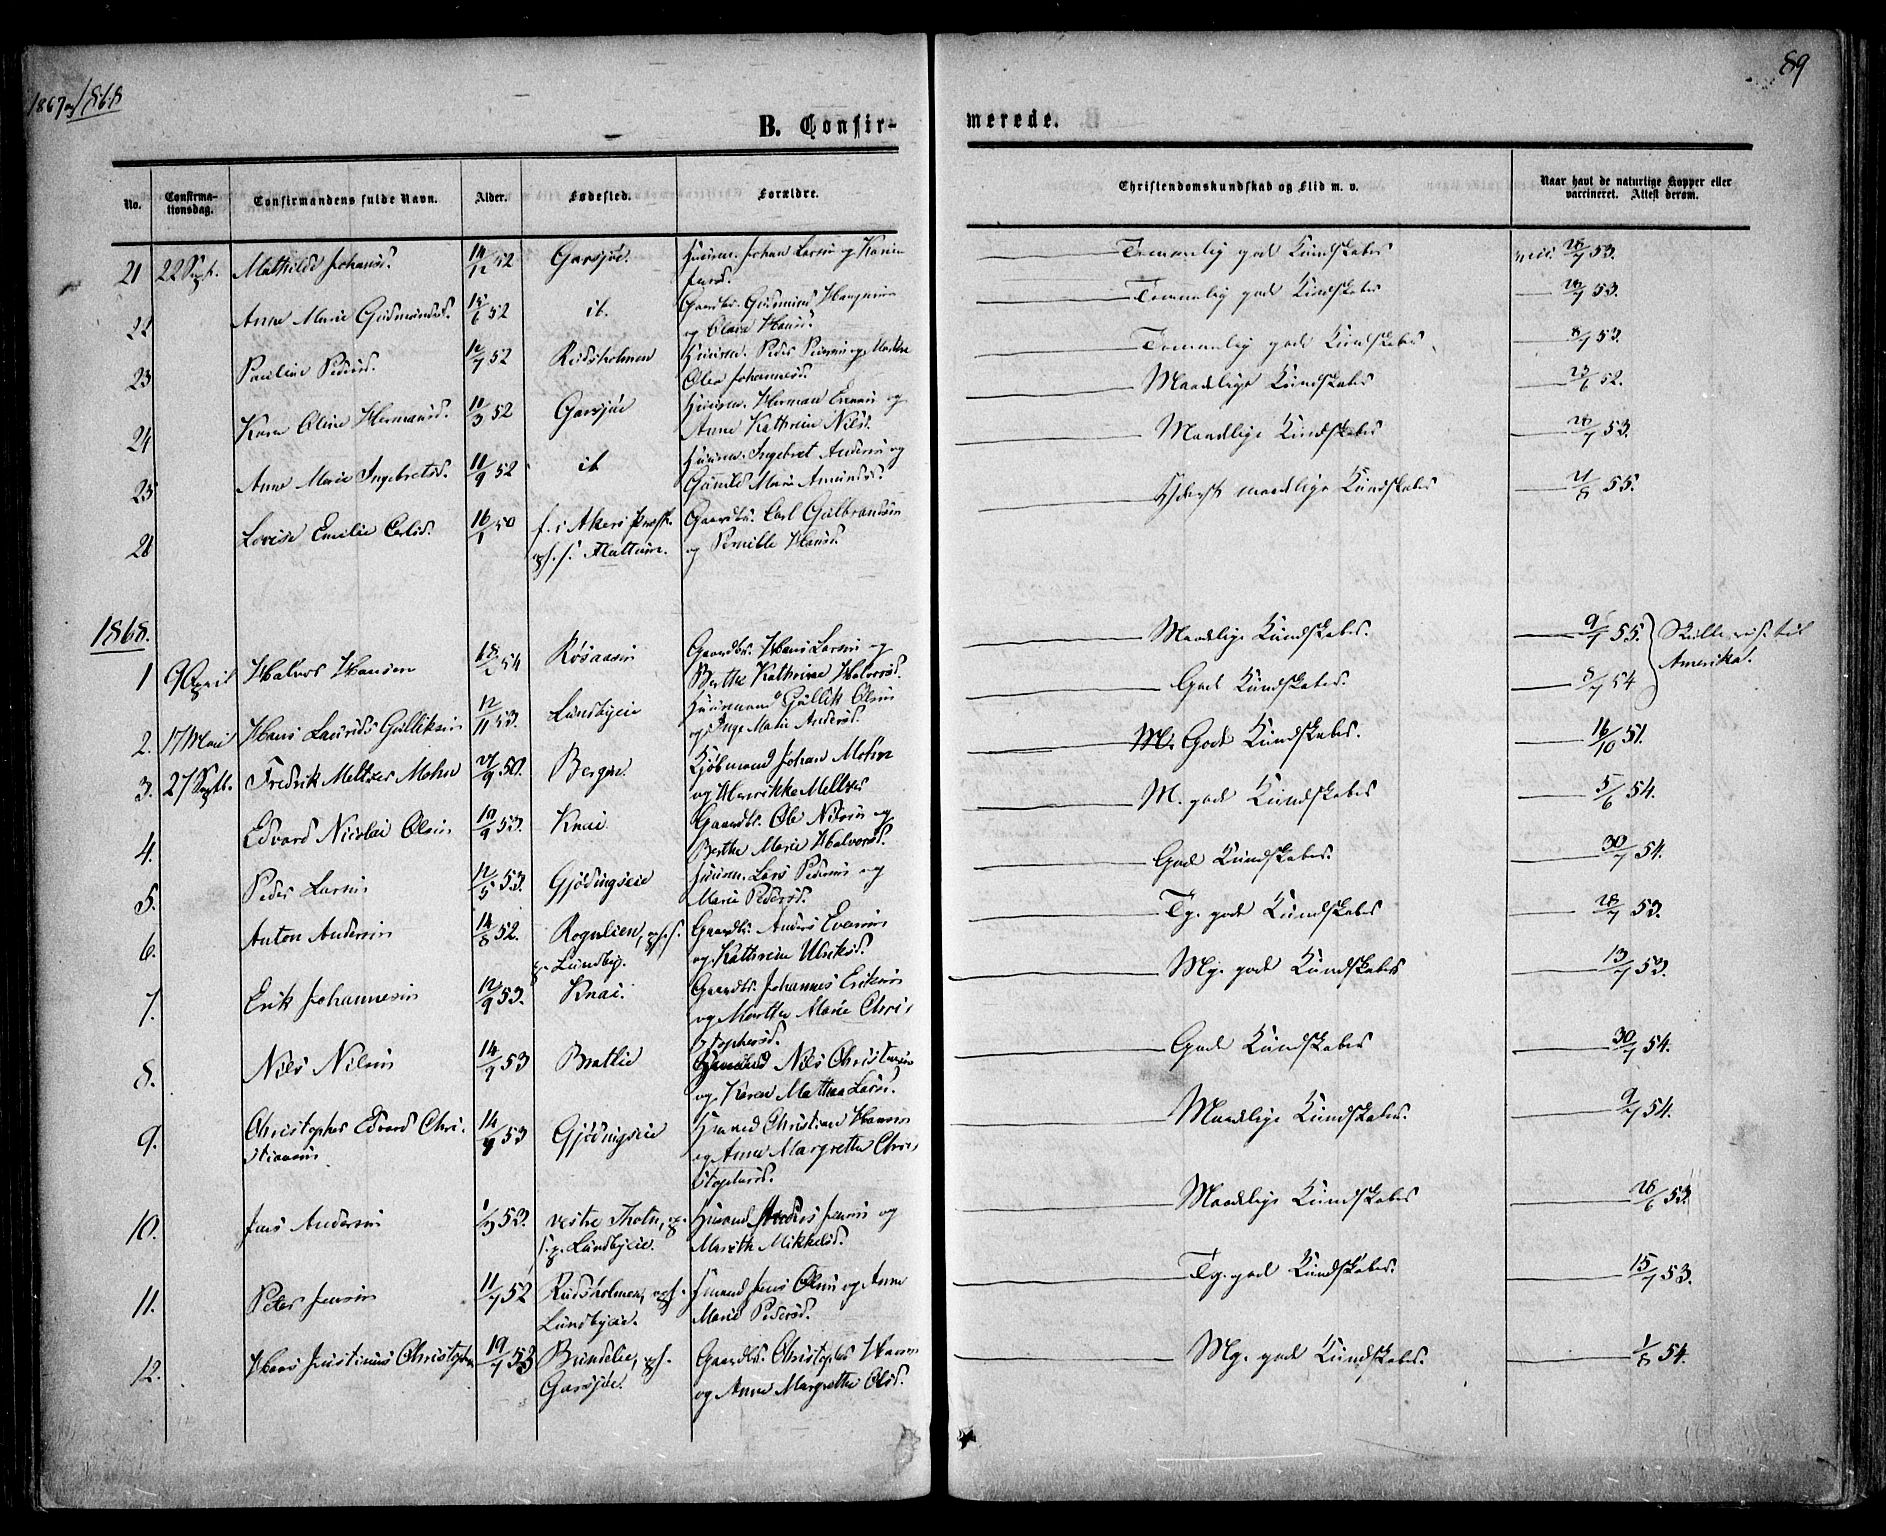 1867 og 1868
89
B. Confir-
merede.
No.
Confirma-
tionsdag.
Confirmandens fulde Navn.
Alder.
Fødested.
Forældre.
Christendomskundskab og Flid m. v.
Naar havt de naturlige Kopper eller
vaccineret. Attest derom.
21 22 Sept. Mathilde Johansd. 14/12 52 Garsjøe. Huusm. Johan Larsen og Karen
Temmelig god Kundskaber 28/7 53.
22 Anne Marie Gudmundsd. 15/6 52 it. Gaardbr. Gudmund
og Hansd.
Temmelig god Kundskaber 28/7 53.
23 Pauline Pedersd. 12/7 52 Rudsholmen Huusm. Peder og Marthe
Olea Johannesd.
Temmelig gode Kundskaber 8/7 53.
24 Karen Oline Hermansd. 10/3 52 Garsjøe Huusm. Herman og
Anne Kathrine Nilsd.
Maadelige Kundskaber 23/6 52.
25 Anne Marie Ingebretsd. 11/9 52 it Huusm. Ingebret Andersen og
Gunild Marie Amundsd.
Maadelige Kundskaber 28/7 53.
26 Lovise Emilie Carlsd. 16/1 50 f. i Akers Præstg. Gaardbr. Carl Gulbrandsen
og Pernille Hansd.
maadelige Kundskaber 21/8 55.
1868.
1 9 April Halvor Hansen 18/2 54 Røsaasen Gaardbr. Hans Larsen og
Berthe Kathrine Halvorsd.
Maadelige Kundskaber. 9/7 55. Skulle reise til
Amerika.
2. 17 Mai Hans Laurids Gulliksen 12/11 53. Lundbyeie Huusmand Gullik Olsen
og Inge Marie Andersd.
God Kundskaber. 8/7 54
3. 27 Septb. Fredrik Meltzer Mohn 21/9 50. Bergen. Kjøbmand Johan Mohn
og Henrikke Meltzer
M. Gode Kundskaber. 16/10 51.
4. Edvard Nicolai Olsen 10/9 53. Knai. Gaardbr. Ole Nilsen og
Berthe Marie Halvorsd.
M. gode Kundskaber 5/6 54.
5. Peder Larsen 12/5 53. Gjødingseie Huusm. Lars Pedersen og
Marie Pedersd.
God Kundskaber. 30/7 54.
6. Anton Andersen 14/8 52. Rognlien, Gaardbr. Anders Evensen
Lundby. og Kathrine Ulriksd.
Tg. gode Kundskaber 28/7 53.
7. Erik Johannesen 12/9 53. Knai. Gaardbr. Johannes Eriksen
og Marthe Marie Chri-
stophersd.
Mg. gode Kundskaber 13/7 53.
8. Nils Nilsen 14/9 53 Bratlie Nils Christensen
og Karen Mathea Larsd.
Gode Kundskaber 30/7 54.
9. Christopher Edvard Chri-
stiansen 14/9 53 Gjødingseie Huusmd Christian Hansen
og Anne Margrethe Chri-
stophersd.
Maadelige Kundskaber. 9/7 54.
10. Jens Andersen 1/3 53. vestre Thoten, Huusmd Anders Jensen og
Lundbyeie. Marith Mikkelsd.
Maadelige Kundskaber 28/6 53.
11. Peter Jensen 11/7 52 Rudsholmen, Jens Olsen og Anne
Lundbyeie. Marie Pedersd.
Tg. god Kundskaber. 15/7 53.
12. Hans Justinus Christophersen 19/7 53 Gaardbr. Christopher Hansen
Garsjøe. og Anne Margrethe Olsd.
Mg. gode Kundskaber. 1/8 54.